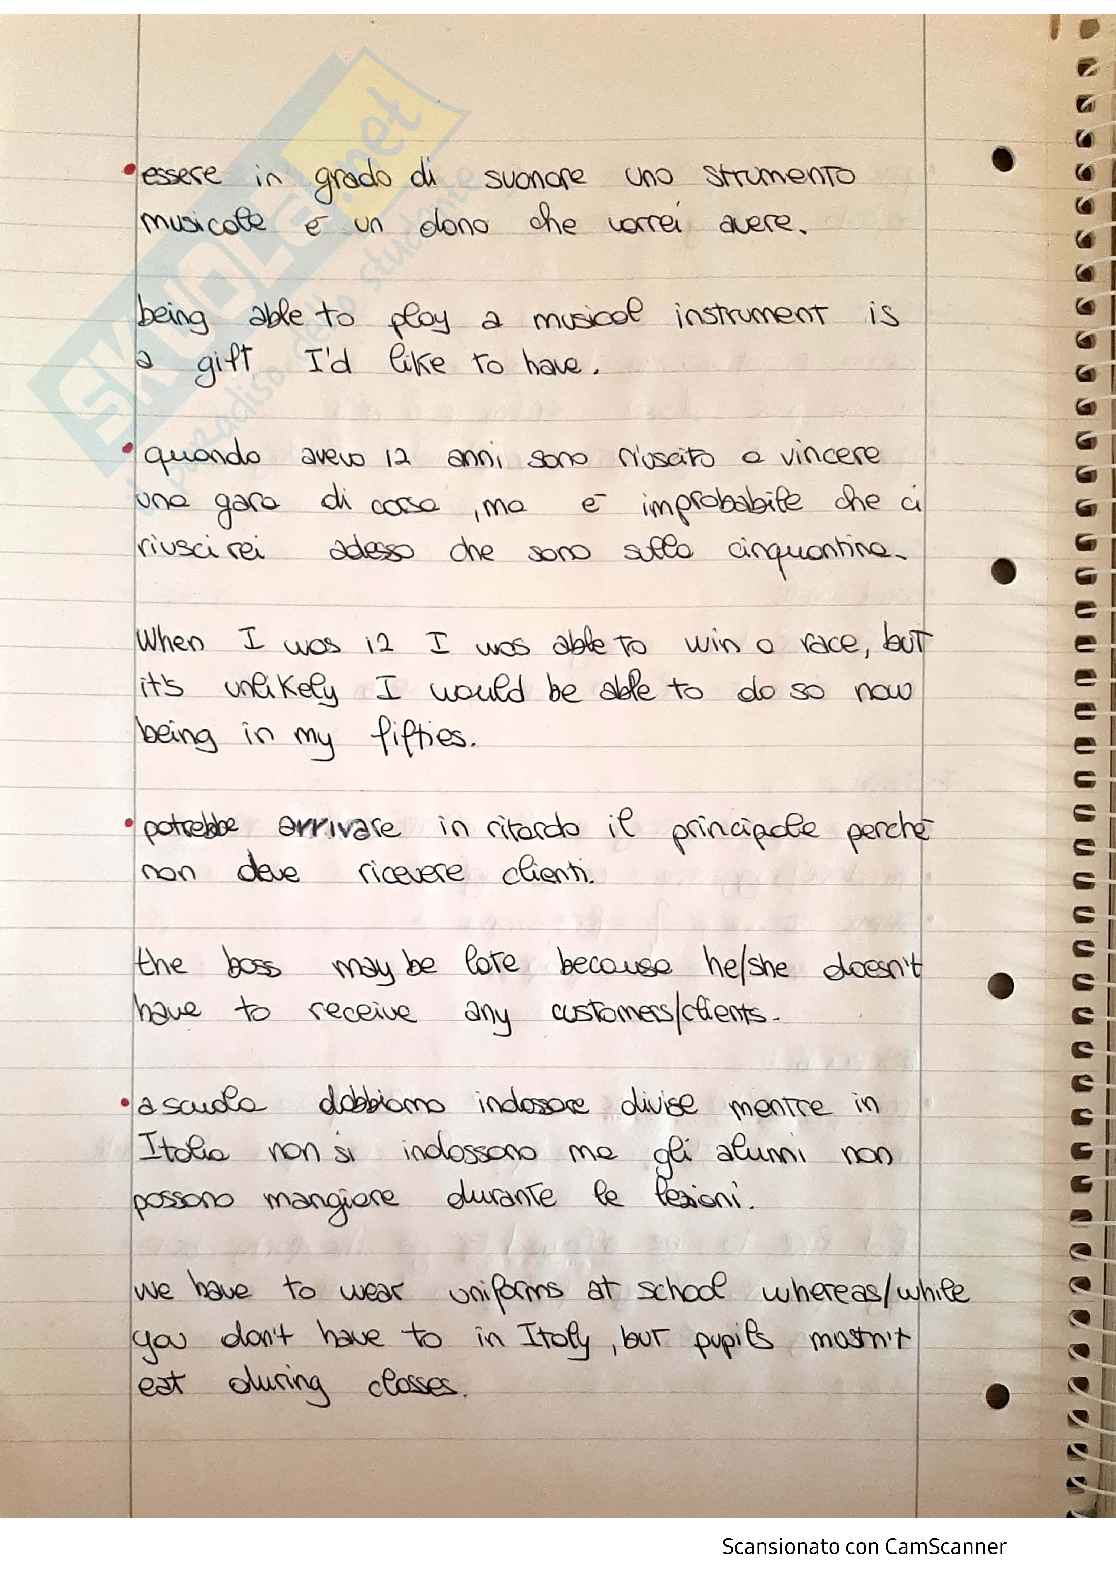 SKUOLA.net
il paradiso dello studente
• essere in grado di suonare uno strumento
musicale è un dono che vorrei avere.
being able to play a musical instrument is
a gift I'd like to have.
• quando avevo 12 anni sono riuscito a vincere
una gara di corsa, ma è improbabile che ci
riuscirei adesso che sono sulla cinquantina.
When I was 12 I was able to win a race, but
it's unlikely I would be able to do so now
being in my fifties.
• potrebbe arrivare in ritardo il principale perchè
non deve ricevere clienti.
the boss may be late because he/she doesn't
have to receive any customers/clients.
• a scuola dobbiamo indossare divise mentre in
Italia non si indossano ma gli alunni non
possono mangiare durante le lezioni.
we have to wear uniforms at school whereas/while
you don't have to in Italy, but pupils mustn't
eat during classes.
Scansionato con CamScanner